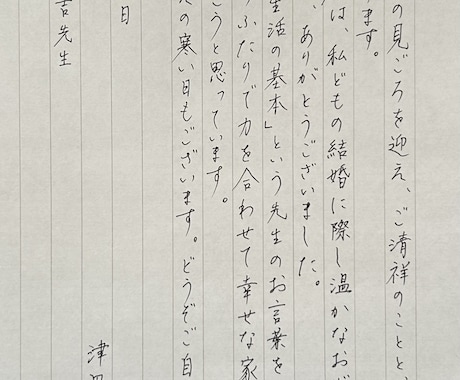 の見ごろを迎え、ご清祥のことと、
ます。
は、私どもの結婚に際し温かなお
、ありがとうございました。
生活の基本」という先生のお言葉を
ふたりで力を合わせて幸せな家
こうと思っています。
の寒い日もございます。どうぞご自
日
津
吉先生